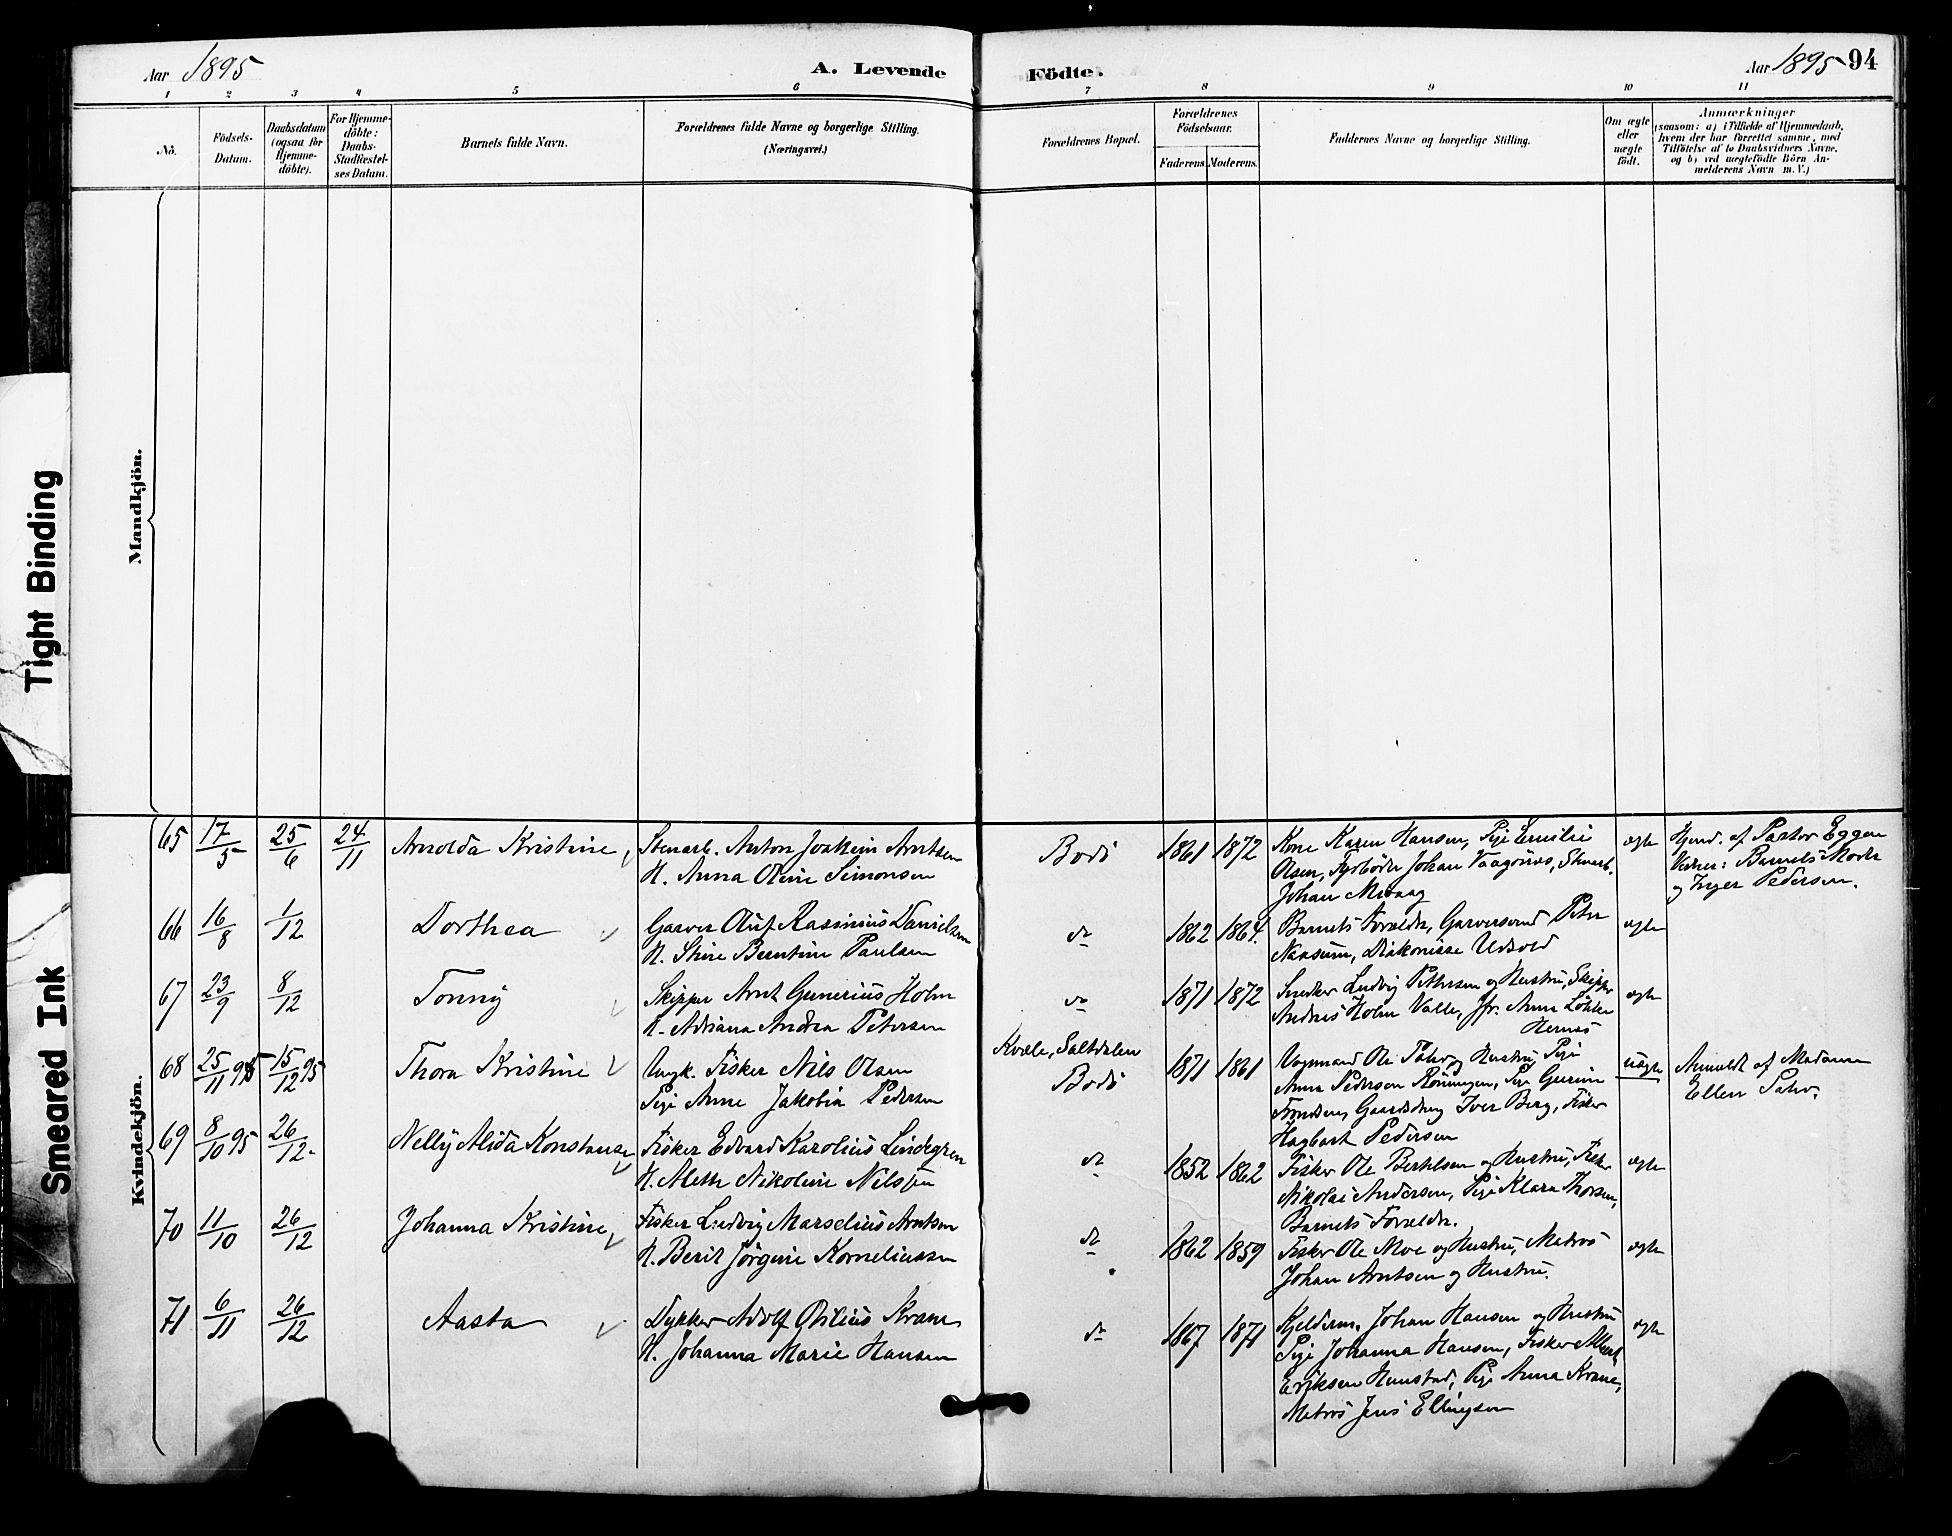 Tight Binding
Smeared Ink
Aar 1895
A. Levende
Födte.
Aar 1895 94
1 2 3 4 5 6 7 8 9 10 11
No.
Födsels-
Datum.
Daabsdatum
(ogsaa for
Hjemme-
döbte).
For Hjemme-
döbte:
Daabs-
Stadfæstel-
ses Datum.
Barnets fulde Navn.
Forældrenes fulde Navne og borgerlige Stilling.
(Næringsvei.)
Forældrenes Bopæl.
Forældrenes
Födselsaar.
Faderens. Moderens.
Faddernes Navne og borgerlige Stilling.
Om ægte
eller
uægte
födt.
Anmærkninger
(saasom: a) i Tilfælde af Hjemmedaab,
hvem der har forrettet samme, med
Tilföielse af to Daabsvidners Navne,
og b) ved uægtefödte Börn An-
melderens Navn m. V.)
Mandkjön.
Kvindekjön.
65 17/5 25/6 24/11 Arnolda Kristine
Stenarb. Anton Joakim Arntsen
H. Anna Oline Simonsen
Bodö 1861 1872
Kone Karen Hansen, Pige Emilie
Olsen, Fyrböder Johan Vaagönes,
Johan
ægte
Hjemd. af Pastor Eggen
Vidner: Barnets Moder
og Inger Pedersen.
66 16/8 1/12 Dorthea
Garver Oluf Rasmus Danielsen
H. Stine Berntine Paulsen
do 1862 1864.
Barnets Forældre, Garversvend Peter
Naasum, Diakonisse Udsvold
ægte
67 23/9 8/12 Tonny
Skipper Arnt Gunerius Holm
H. Adriana Andrea Petersen
do 1871 1872
Snedker Ludvig Pettersen og Hustru, Skipper
Andreas Holm Valle, Jfr. Anna Lökke
Hernes
ægte
68 25/11 95 15/12 95 Thora Kristine
Ungk. Fisker Nils Olsen
Pige Anne Jakobia Pedersen
Kvæle, Saltdalen
Bodö
1871 1861
Vognmand Ole Pahr og Hustru, Pige
Anna Pedersen Rönningen, Pige Gurine
Gaardsdreng Iver Berg, Fisker
Hagbart Pedersen
uægte
Anmeldt af Madame
Ellen Pahr.
69 8/10 95 26/12. Nelly Alida Konstanse
Fisker Edvard Karolius Lindegren
H. Alette Nikoline Nilssen
do 1852 1862
Fisker Ole Bertelsen og Hustru, Fisker
Nikolai Andersen, Pige Klara Thorsen,
Barnets Forældre.
ægte
70 11/10 26/12 Johanna Kristine
Fisker Ludvig Marselius Arntsen
H. Berit Jörgine Korneliussen
do 1862 1859
Fisker Ole Moe og Hustru, Matros
Johan Arntsen og Hustru.
ægte
71 6/11 26/12 Aasta
Dykker Adolf Otilius Krane
H. Johanna Marie Hansen
do 1867 1871
Kjelderm. Johan Hansen og Hustru
Pige Johanna Hansen, Fisker
Eriksen Hunstad, Pige Anna Krane,
Matros Jens Ellingsen
ægte